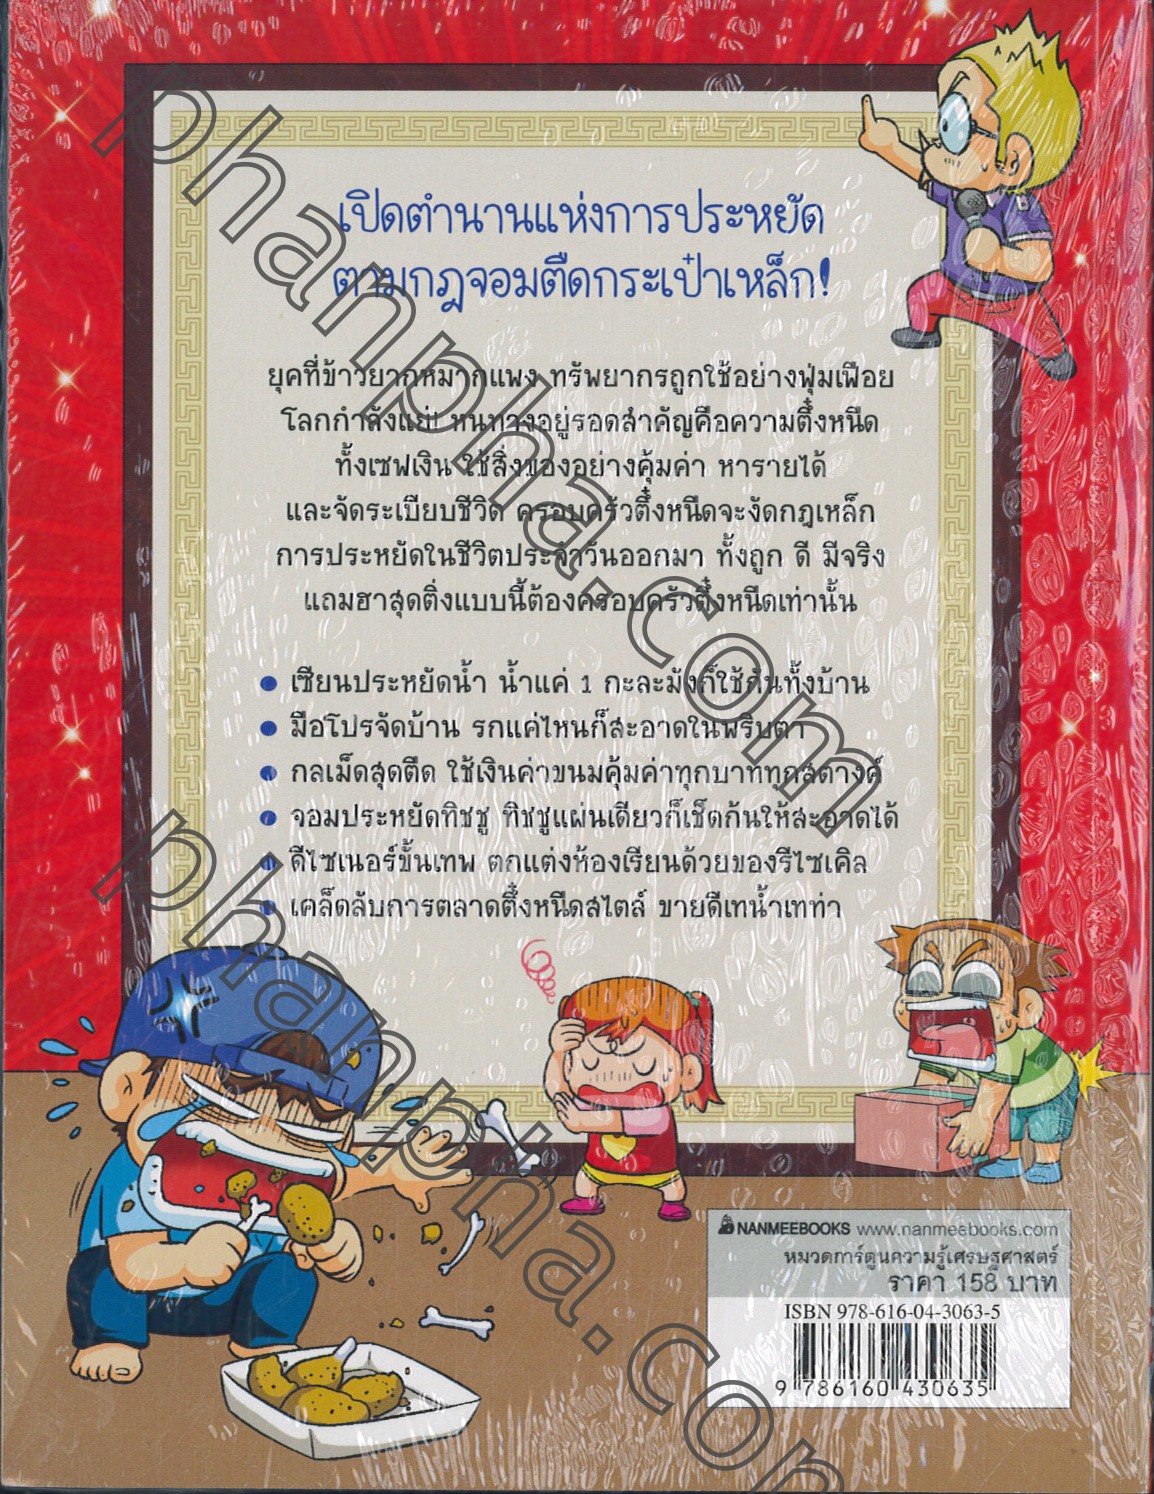 เปิดตำนานแห่งการประหยัด
ตามกฎจอมตืดกระเป๋าเหล็ก!
ยุคที่ข้าวยากหมากแพง ทรัพยากรถูกใช้อย่างฟุ่มเฟือย
โลกกำลังแย่! หนทางอยู่รอดสำคัญคือความตึ๋งหนืด
ทั้งเซฟเงิน ใช้สิ่งของอย่างคุ้มค่า หารายได้
และจัดระเบียบชีวิต ครอบครัวตึ๋งหนืดจะงัดกฎเหล็ก
การประหยัดในชีวิตประจำวันออกมา ทั้งถูก ดี มีจริง
แถมฮาสุดติ่งแบบนี้ต้องครอบครัวตึ๋งหนืดเท่านั้น
● เซียนประหยัดน้ำ น้ำแค่ 1 กะละมังก็ใช้กันทั้งบ้าน
● มือโปรจัดบ้าน รกแค่ไหนก็สะอาดในพริบตา
● กลเม็ดสุดตืด ใช้เงินค่าขนมคุ้มค่าทุกบาททุกสตางค์
● จอมประหยัดทิชชู ทิชชูแผ่นเดียวก็เช็ดก้นให้สะอาดได้
● ดีไซเนอร์ขั้นเทพ ตกแต่งห้องเรียนด้วยของรีไซเคิล
● เคล็ดลับการตลาดตึ๋งหนืดสไตล์ ขายดีเทน้ำเทท่า
NANMEEBOOKS www.nanmeebooks.com
หมวดการ์ตูนความรู้เศรษฐศาสตร์
ราคา 158 บาท
ISBN 978-616-04-3063-5
9 786160 430635
phanpha.com
phanpha.com